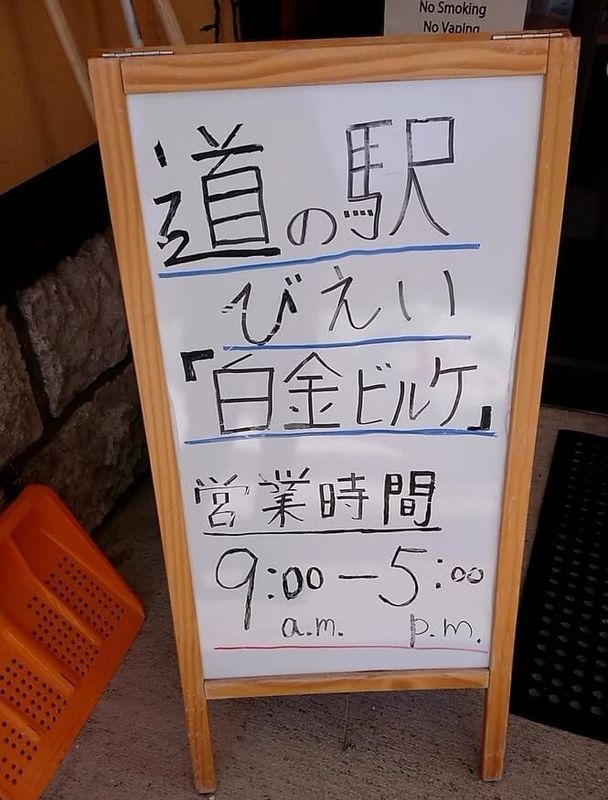 No Smoking
No Vaping
道の駅
びえい
「白金ビルケ」
営業時間
9:00-5:00
a.m. p.m.